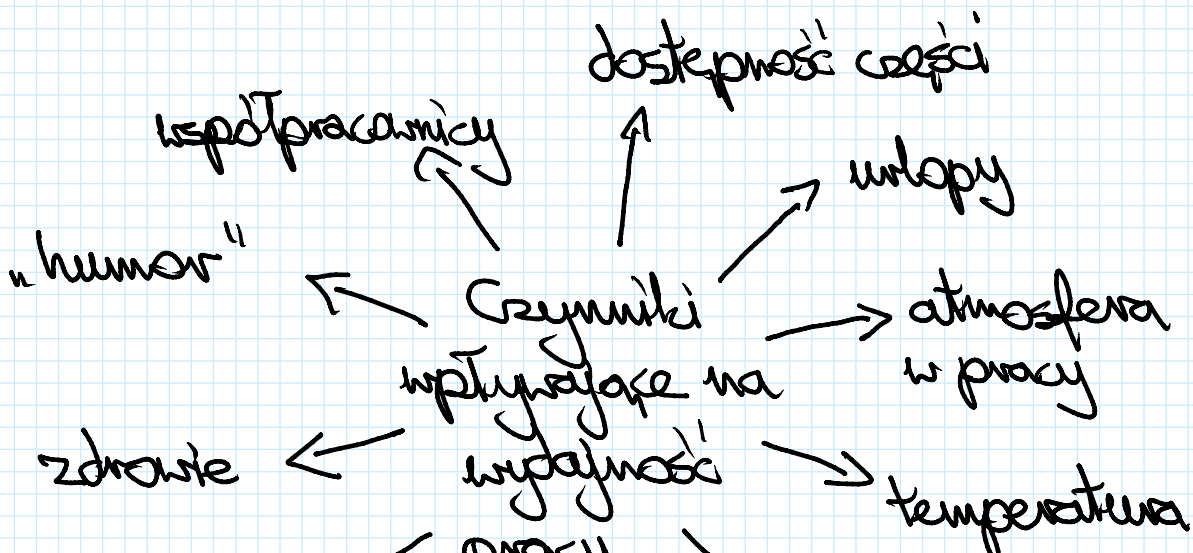 dostępność części
współpracownicy
urlopy
„humor"
Czynniki
wpływające na
wydajność
pracy
atmosfera
w pracy
zdrowie
temperatura